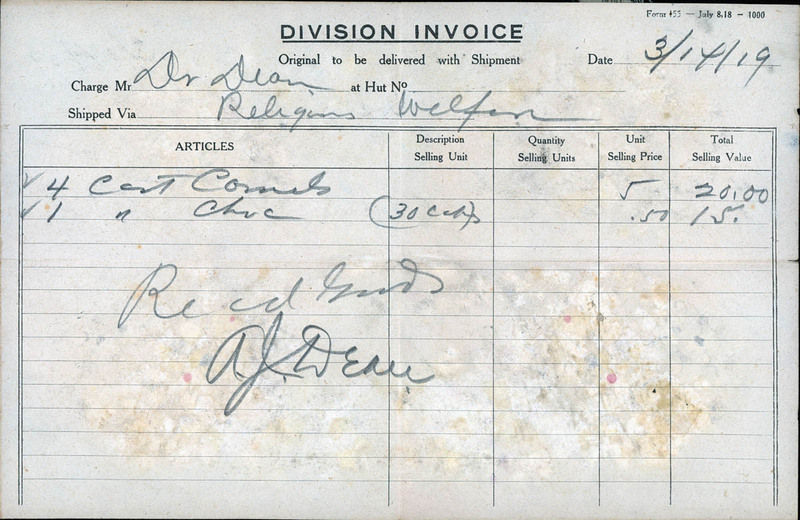 Form 455 — July 8.18 - 1000
DIVISION INVOICE
Original to be delivered with Shipment Date 3/14/19
Charge Mr Dr Dean at Hut No
Shipped Via Religious Welfare
ARTICLES Description Selling Unit Quantity Selling Units Unit Selling Price Total Selling Value
✓ 4 Cart 5 20.00
✓ 1 " Choc (30 cak) .50 15.
Recd Goods
A.J. Dean